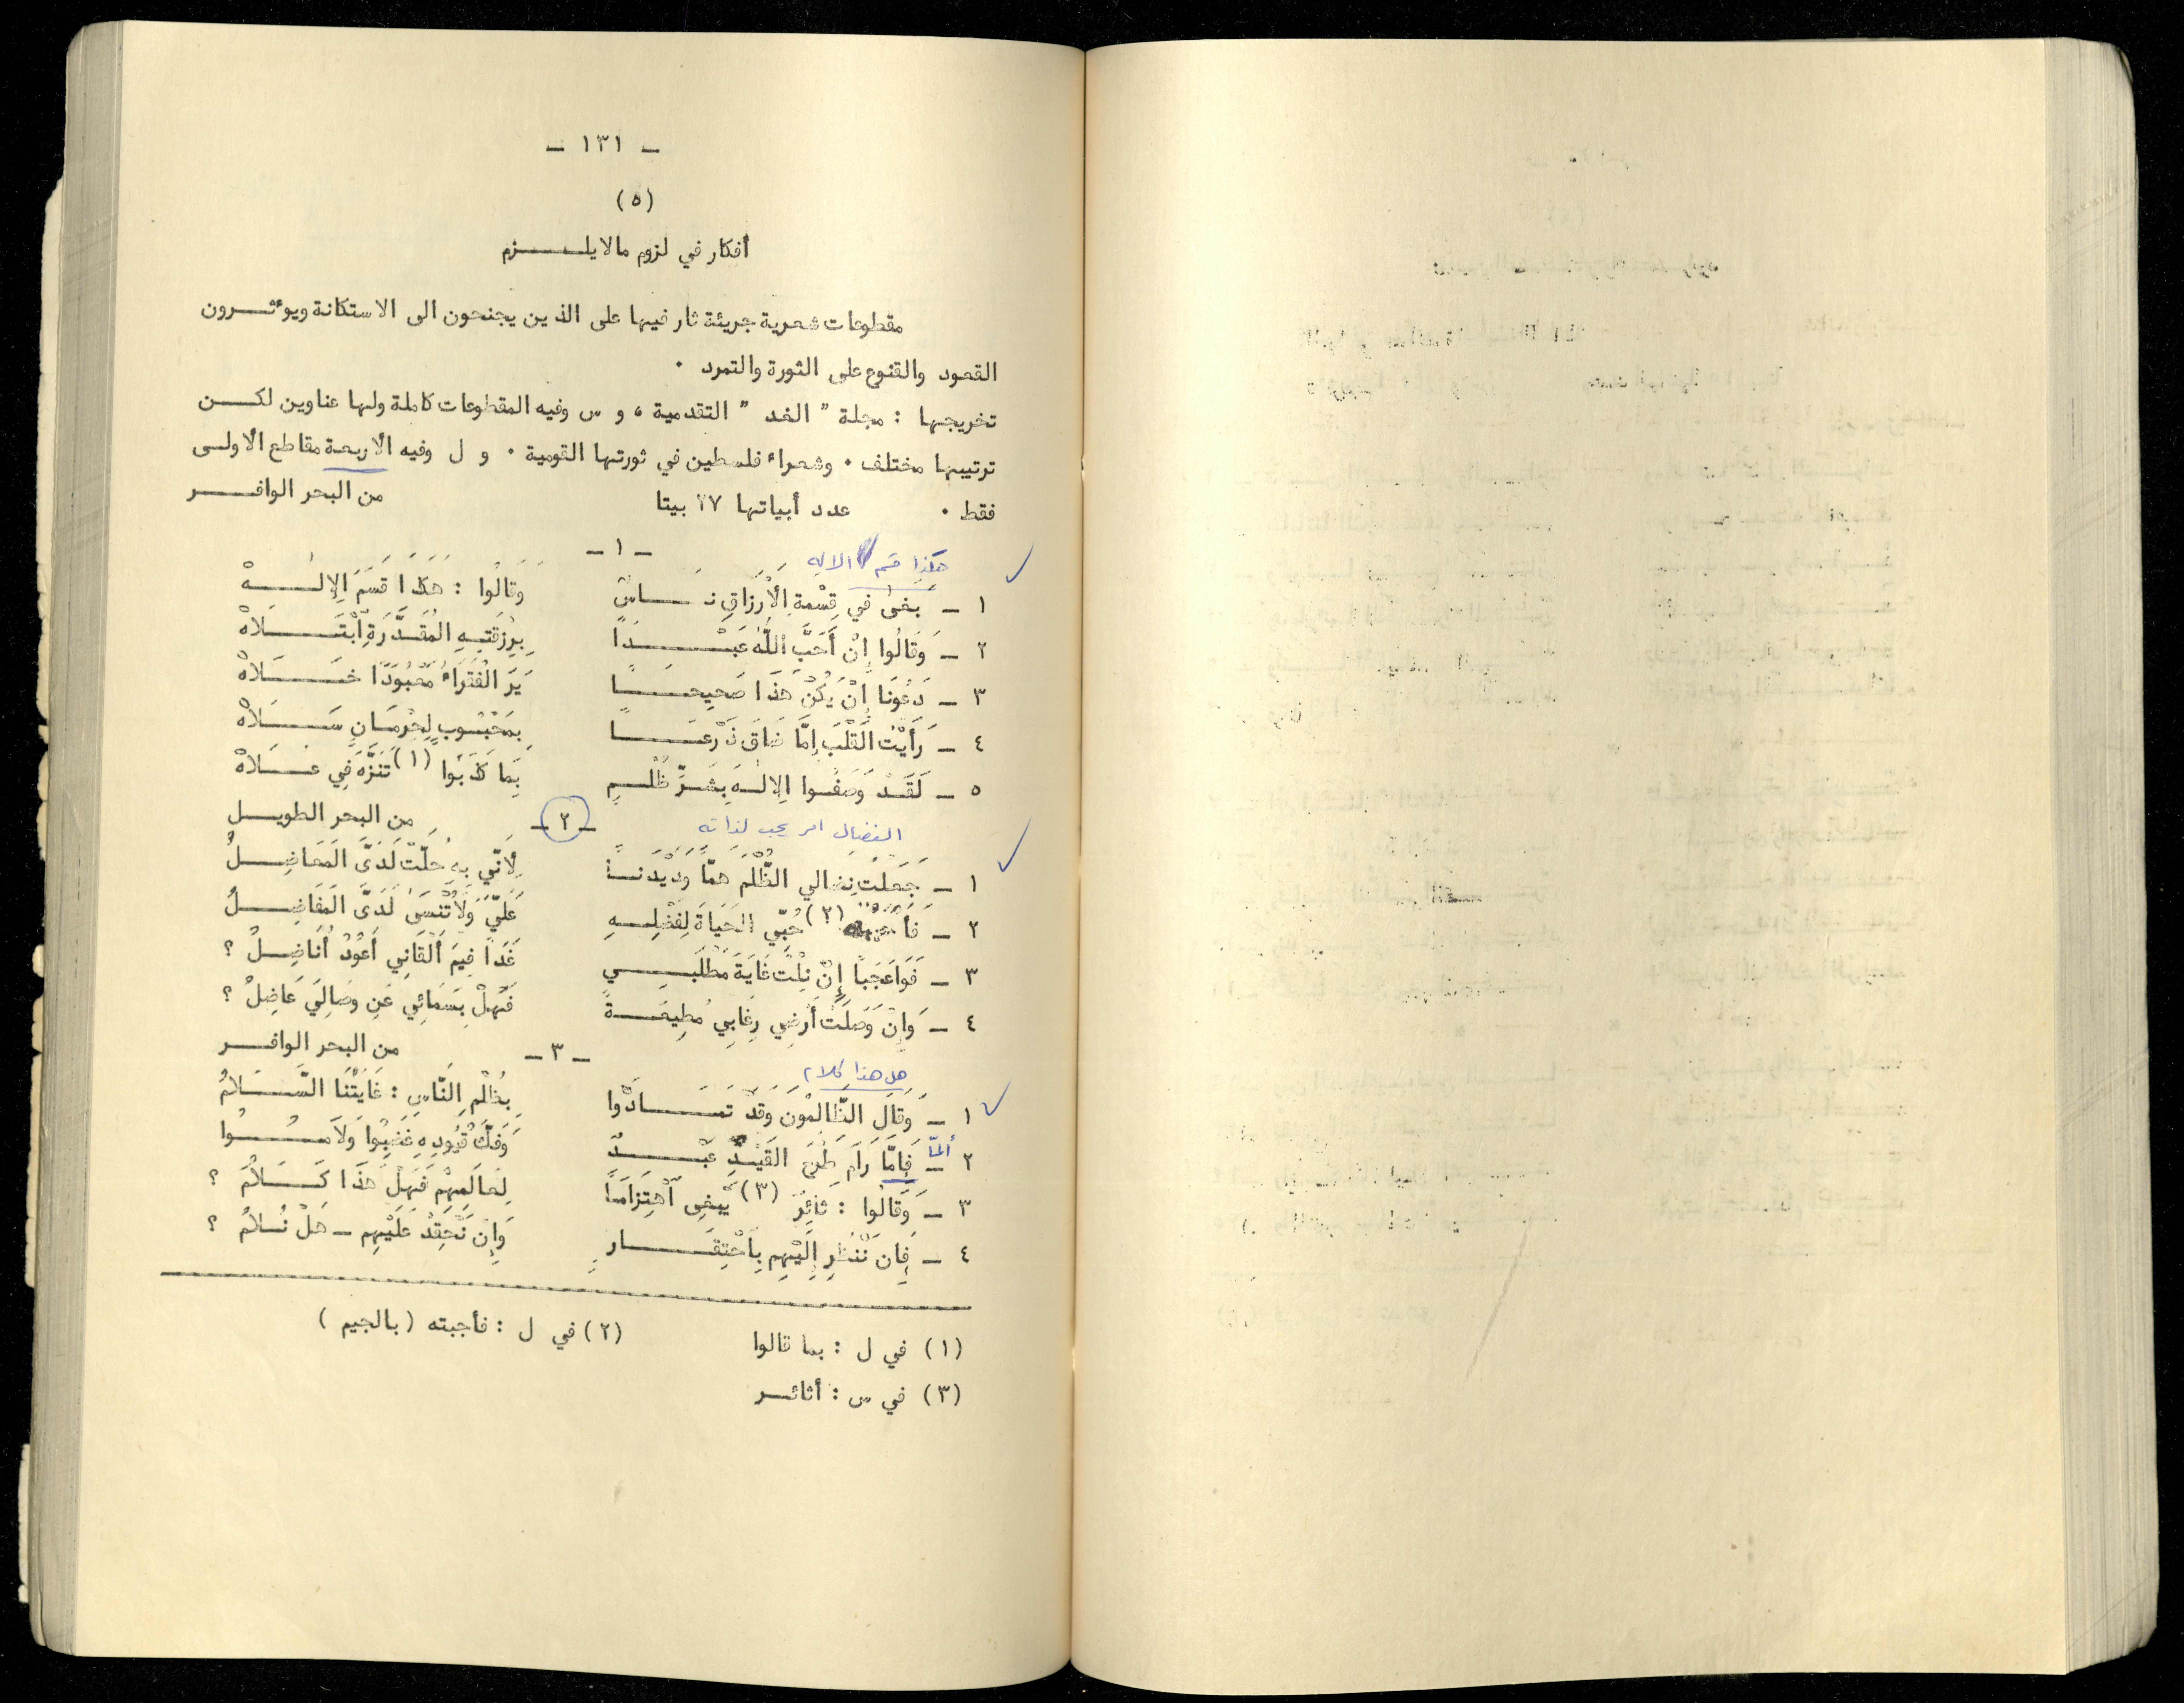 - ١٣١ -
(٥)
أفكار في لزوم مالايلـــزم
مقطوعات شعرية جريئة ثار فيها على الذين يجنحون الى الاستكانة ويوءثـــرون
القعود والقنوع على الثورة والتمرد ٠
تخريجها : مجلة " الغد " التقدمية ، و س وفيه المقطوعات كاملة ولها عناوين لكـــن
ترتيبها مختلف ٠ وشعراء فلسطين في ثورتها القومية ٠ و ل وفيه الأربعة مقاطع الأولـى
فقط ٠ عدد أبياتها ٢٧ بيتا من البحر الوافـــر
- ١ -
هكذا قسم الاله
١ - بغى في قِسْمةِ الأَرزَاقِ نـَــاسٌ وَقَالُوا : هَكَذَا قَسَمَ الِإلــهْ
٢ - وَقَالُوا إِنْ أَحَبَّ اللَّهُ عَبْـــدَاً بِرِزقَتِـهِ المُقَـدَّرَةِ اُبْتَـــلاهْ
٣ - دَعُونَا إِنْ يَكُنْ هَذَا صَحيحـــاً يَرَ الْفُقَرَاءُ مَعْبُودَاً خـَــلاهْ
٤ - رَأَيْتُ الْقَلْبَ إِمَّا ضَاقَ ذَرْعـَــا بِمَحْبُـوبٍ لِحُرْمَـانٍ سَـــلاهْ
٥ - لَقَـدْ وَصَفُـوا الِإلـهَ بِشَـرِّ ظُلْــمٍ بَمَا كَذَبُوا (١) تَنَزَّهَ فِي عُـــلاهْ
- ٢ - من البحر الطويــل
النضال امر يجب لذاته
١ - جَعَلْتُ نِضالي الظُّلْمَ همّاً وَدَيْدَنــاً لِأنّي بِهِ حُلّتْ لَدَىَّ الْمَعَاضِــلُ
٢ - فَأحببته (٢) حُبّي الحَيَاةَ لِفَضْلِـــهِ عَلَيَّ وَلَا تُنْسَىَ لَدَىَّ الْمَفَاضِــلُ
٣ - فَوَاعَجَبَاً إِنْ نِلْتُ غَايَةَ مَطْلَبِـــي غَدَاً فِيمَ أَلْقَانِي أَعُوْدُ أُنَاضِـلُ ؟
٤ - وَإِنْ وَصَلَتْ أَرْضِي رِغَابِي مُطِيعَـــةً فَهَلْ بِسَمَائِي عَنِ وِصَالِيَ عَاضِلُ ؟
- ٣ - من البحر الوافــر
هل هذا كلام
١ - وَقَالَ الظَّالِمُونَ وَقَدْ تَمَـــادَوْا بِظُلْمِ النَّاسِ : غَايَتُنَا السَّـــلامُ
ألمّا
٢ - فَإمَّا رَامَ طَرْحَ القَيْدِ عَبْـــدٌ وَفَكَّ قُيُودِهِ غَضِبُوا وَلَامُـــوا
٣ - وَقَالُوا : ثَائِرٌ (٣) يَبغِى اُهْتِزَامَاً لِعَالَمِهِمْ فَهَلْ هَذَا كَـــلامٌ ؟
٤ - فَإِن نَنْظُرِ إِلَيْهِم بِاحْتِقَـــارٍ وَإِن نَحْقِدْ عَلَيْهِم - هَلْ نُـلامُ ؟
(١) في ل : بما قالوا (٢) في ل : فأجبته (بالجيم)
(٣) في س : أثائـــر